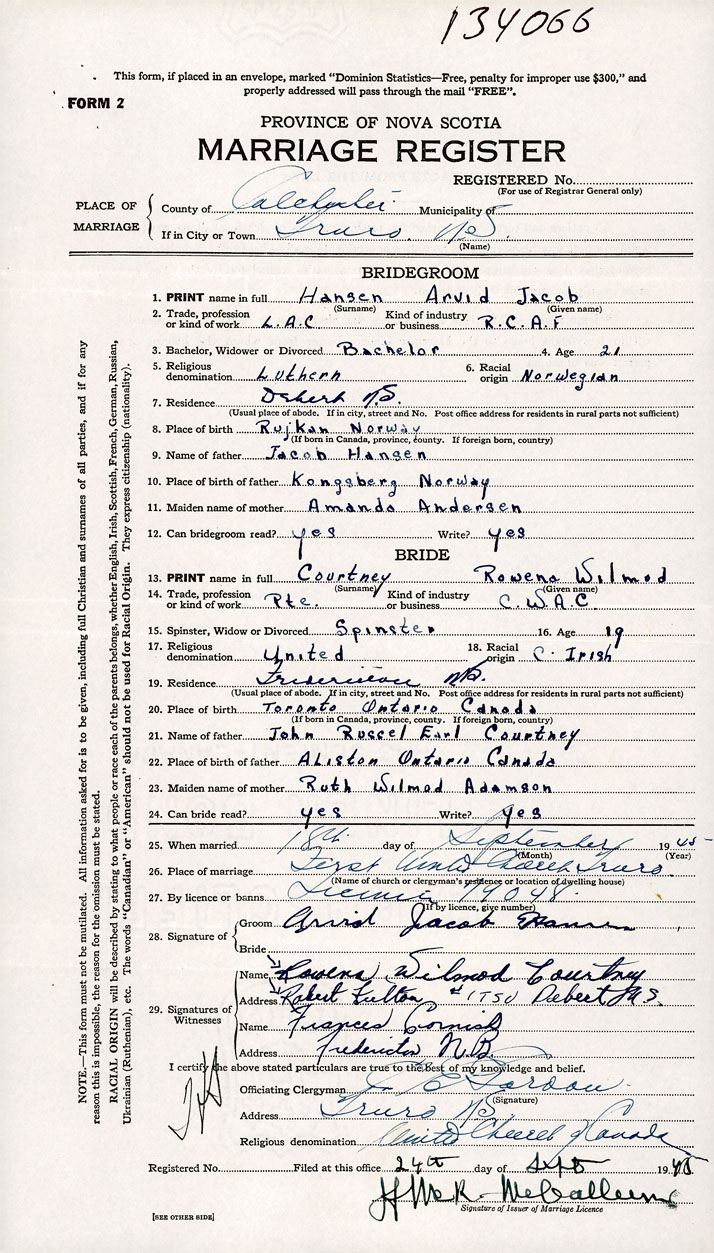 134066
This form, if placed in an envelope, marked "Dominion Statistics—Free, penalty for improper use $300," and
properly addressed will pass through the mail "FREE".
FORM 2
PROVINCE OF NOVA SCOTIA
MARRIAGE REGISTER
REGISTERED No.
(For use of Registrar General only)
PLACE OF MARRIAGE
County of Colchester Municipality of
If in City or Town Truro N.S.
(Name)
BRIDEGROOM
1. PRINT name in full Hansen Arvid Jacob
(Surname) (Given name)
2. Trade, profession or kind of work L.A.C Kind of industry or business R.C.A.F
3. Bachelor, Widower or Divorced Bachelor 4. Age 21
5. Religious denomination Luthern 6. Racial origin Norwegian
7. Residence Debert N.S.
(Usual place of abode. If in city, street and No. Post office address for residents in rural parts not sufficient)
8. Place of birth Rujkan Norway
(If born in Canada, province, county. If foreign born, country)
9. Name of father Jacob Hansen
10. Place of birth of father Kongsberg Norway
11. Maiden name of mother Amanda Andersen
12. Can bridegroom read? yes Write? yes
BRIDE
13. PRINT name in full Courtney Rowena Wilmod
(Surname) (Given name)
14. Trade, profession or kind of work Pte. Kind of industry or business C.W.A.C.
15. Spinster, Widow or Divorced Spinster 16. Age 19
17. Religious denomination United 18. Racial origin C. Irish
19. Residence Fredericton N.B.
(Usual place of abode. If in city, street and No. Post office address for residents in rural parts not sufficient)
20. Place of birth Toronto Ontario Canada
(If born in Canada, province, county. If foreign born, country)
21. Name of father John Russel Earl Courtney
22. Place of birth of father Aliston Ontario Canada
23. Maiden name of mother Ruth Wilmod Adamson
24. Can bride read? yes Write? yes
25. When married 18th day of September 1945
(Month) (Year)
26. Place of marriage First United Church Truro
(Name of church or clergyman's residence or location of dwelling house)
27. By licence or banns License 19048
(If by licence, give number)
28. Signature of
Groom Arvid Jacob Hansen
Bride
29. Signatures of Witnesses
Name Rowena Wilmod Courtney
Address Robert Fulton #1TSU Debert N.S.
Name Frances Cornish
Address Fredericton N.B.
I certify the above stated particulars are true to the best of my knowledge and belief.
Officiating Clergyman Gordon
(Signature)
Address Truro N.S.
Religious denomination United Church of Canada
Registered No. Filed at this office 24th day of Sept 1945
McCallum
Signature of Issuer of Marriage Licence
[SEE OTHER SIDE]
NOTE.—This form must not be mutilated. All information asked for is to be given, including full Christian and surnames of all parties, and if for any
reason this is impossible, the reason for the omission must be stated.
RACIAL ORIGIN will be described by stating to what people or race each of the parents belongs, whether English, Irish, Scottish, French, German, Russian,
Ukrainian (Ruthenian), etc. The words "Canadian" or "American" should not be used for Racial Origin. They express citizenship (nationality).